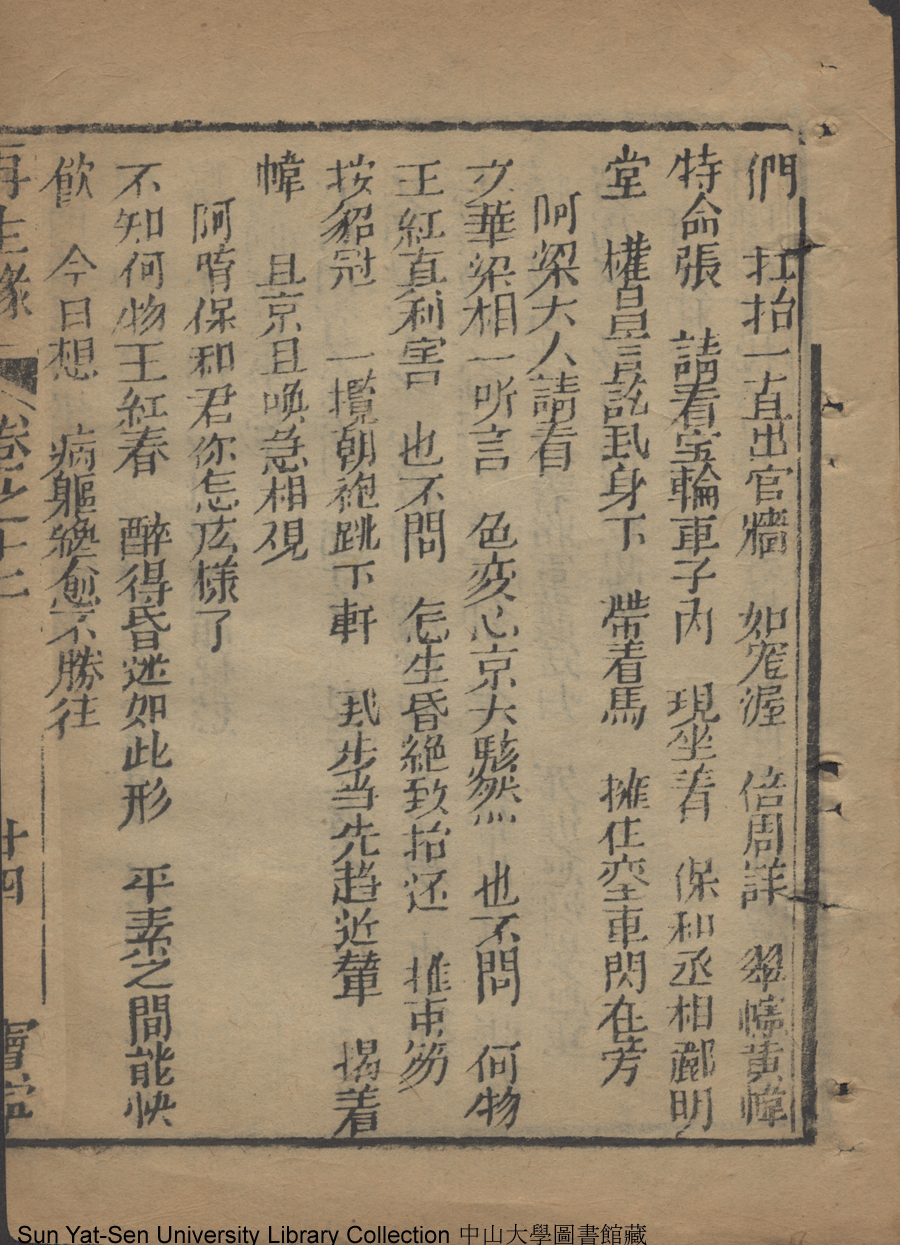 們 扛抬一直出官牆 如窕渥 倍周詳 翠幰黃幃
特命張 請看宝輪車子內 現坐着 保和丞相酈明
堂 權昌言訖㦲身下 帶着馬 擁住奕車閃在旁
阿梁大人請看
文華梁相一听言 色变心京大駭然 也不問 何物
王紅真利害 也不問 怎生昏絕致抬还 推束笏
按貂冠 一攬朝袍跳下軒 㦲步当先趋近輦 揭着
幃 且京且喚急相視
阿唷保和君你怎庅樣了
不知何物王紅春 醉得昏迷如此形 平素之間能快
飲 今日想 病軀纔愈不勝往
再生緣 卷之十二 廿四
Sun Yat-Sen University Library Collection 中山大學圖書館藏